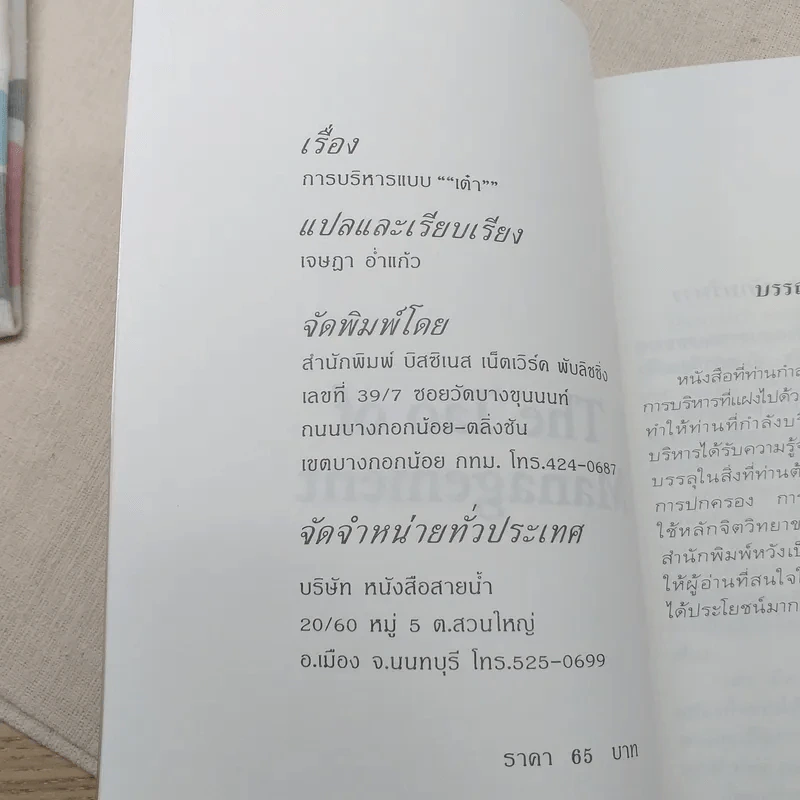 เรื่อง
การบริหารแบบ ““เต๋า””
แปลและเรียบเรียง
เจษฎา อ่ำแก้ว
จัดพิมพ์โดย
สำนักพิมพ์ บิสซิเนส เน็ตเวิร์ค พับลิชชิ่ง
เลขที่ 39/7 ซอยวัดบางขุนนนท์
ถนนบางกอกน้อย-ตลิ่งชัน
เขตบางกอกน้อย กทม. โทร.424-0687
จัดจำหน่ายทั่วประเทศ
บริษัท หนังสือสายน้ำ
20/60 หมู่ 5 ต.สวนใหญ่
อ.เมือง จ.นนทบุรี โทร.525-0699
ราคา 65 บาท
หนังสือที่ท่านกำลั
การบริหารที่แฝงไปด้ว
ทำให้ท่านที่กำลังบริ
บริหารได้รับความรู้จ
บรรลุในสิ่งที่ท่านต้
การปกครอง การ
ใช้หลักจิตวิทยาข
สำนักพิมพ์หวังเป็
ให้ผู้อ่านที่สนใจใ
ได้ประโยชน์มาก